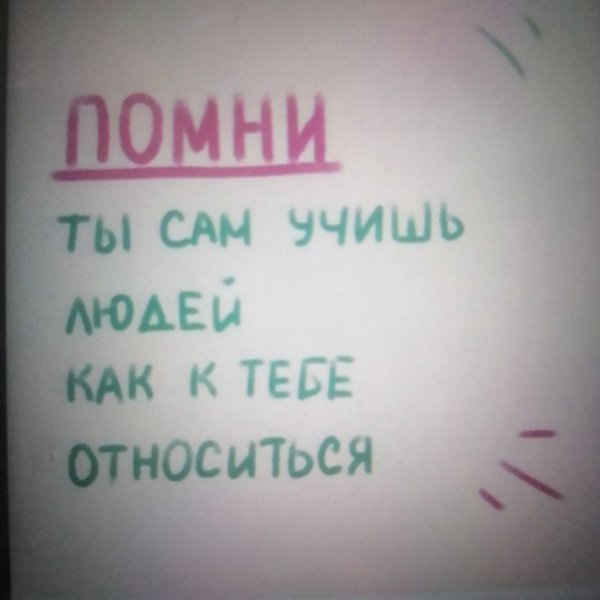 ПОМНИ
ТЫ САМ УЧИШЬ
ЛЮДЕЙ
КАК К ТЕБЕ
ОТНОСИТЬСЯ